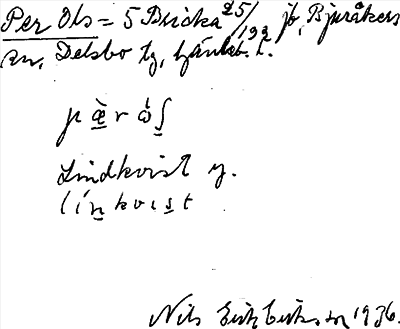 Per Ols = 5 Bricka 25/192 jb, Bjuråkers
sn, Delsbo tg,
p æ r ω ʃ
Lindkvist y.
l i n k v i s t
Nils Erik Eriksson 1936.